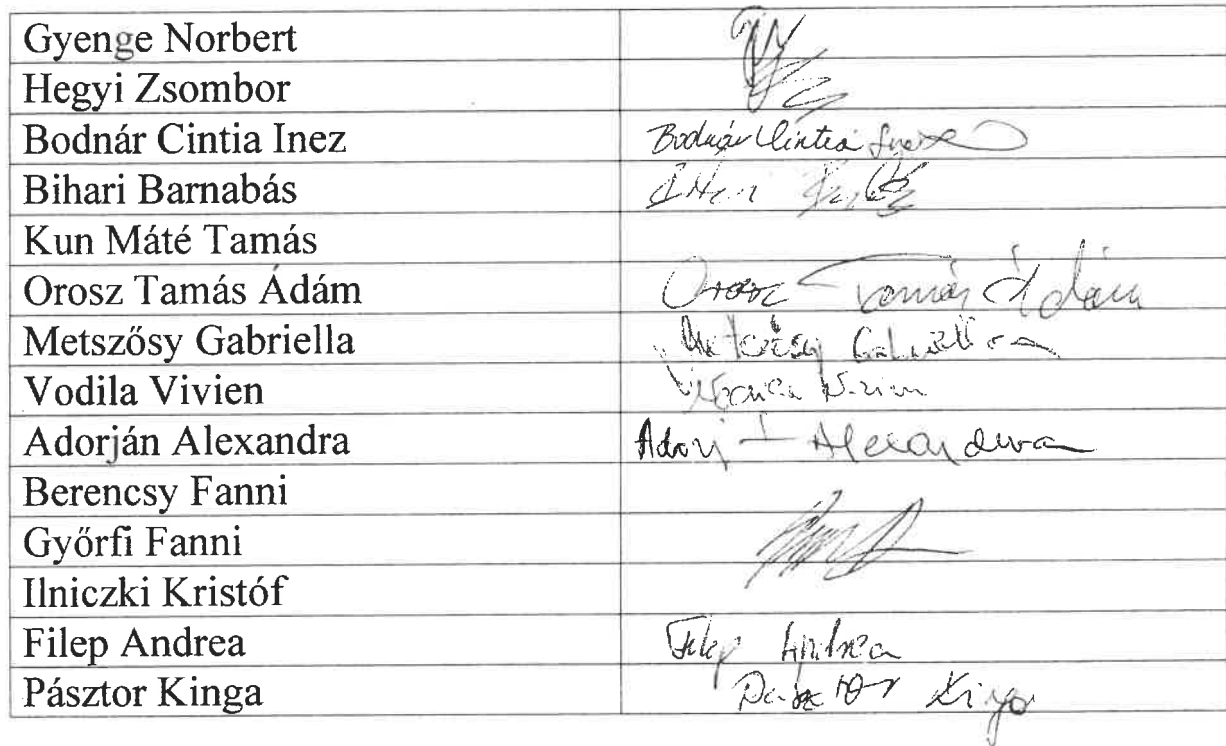 Gyenge Norbert
Hegyi Zsombor
Bodnár Cintia Inez Bodnár Cintia Inez
Bihari Barnabás
Kun Máté Tamás
Orosz Tamás Ádám Orosz Tamás Ádám
Metszősy Gabriella Metszősy Gabriella
Vodila Vivien Vodila Vivien
Adorján Alexandra Alexandra
Berencsy Fanni
Győrfi Fanni
Ilniczki Kristóf
Filep Andrea Filep Andrea
Pásztor Kinga Pásztor Kinga